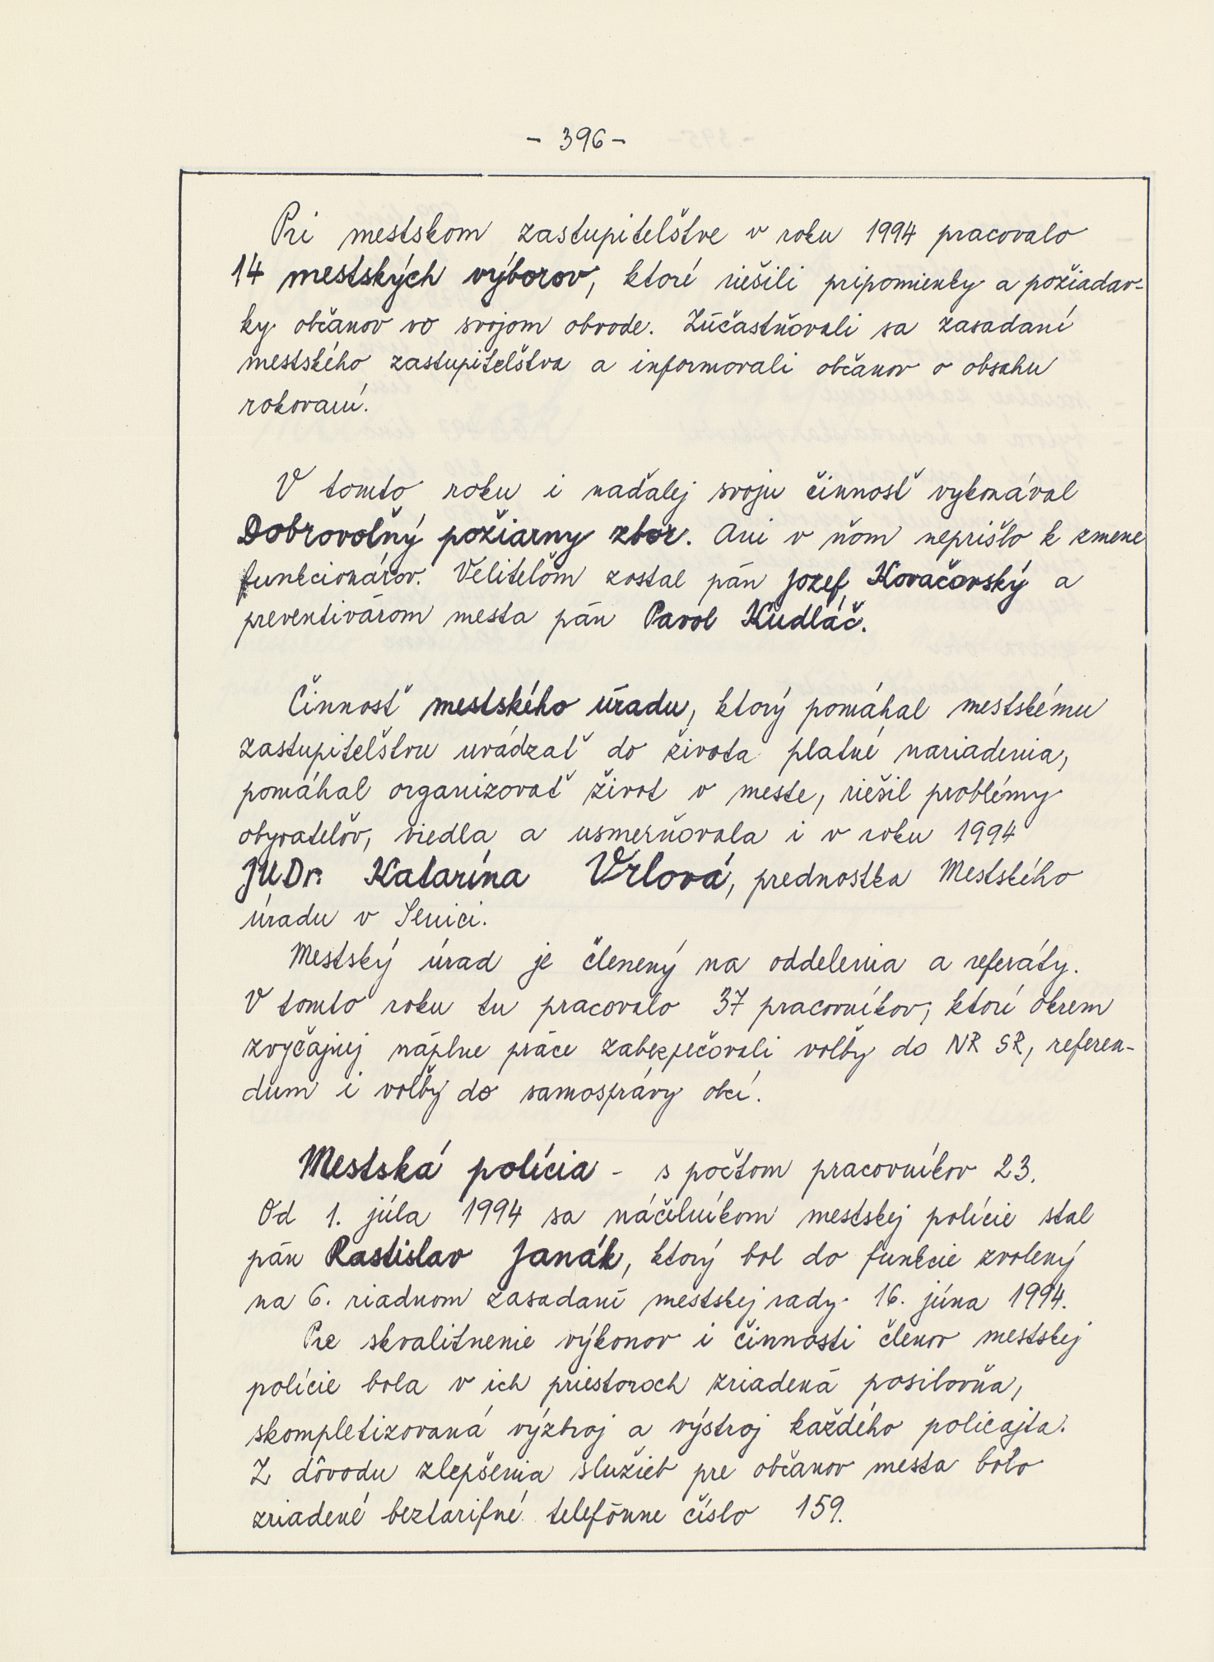 - 396 -
Pri mestskom zastupiteľstve v roku 1994 pracovalo
14 mestských výborov, ktoré riešili pripomienky a požiadav-
ky občanov vo svojom obvode. Zúčastňovali sa zasadaní
mestského zastupiteľstva a informovali občanov o obsahu
rokovaní.
V tomto roku i naďalej svoju činnosť vykonával
Dobrovoľný požiarny zbor. Ani v ňom neprišlo k zmene
funkcionárov. Veliteľom zostal pán Jozef Kovačovský a
preventivárom mesta pán Pavol Kudláč.
Činnosť mestského úradu, ktorý pomáhal mestskému
zastupiteľstvu uvádzať do života platné nariadenia,
pomáhal organizovať život v meste, riešil problémy
obyvateľov, viedla a usmerňovala i v roku 1994
JUDr. Katarína Vrlová, prednostka Mestského
úradu v Senici.
Mestský úrad je členený na oddelenia a referáty.
V tomto roku tu pracovalo 37 pracovníkov, ktorí okrem
zvyčajnej náplne práce zabezpečovali voľby do NR SR, referen-
dum i voľby do samosprávy obcí.
Mestská polícia - s počtom pracovníkov 23.
Od 1. júla 1994 sa náčelníkom mestskej polície stal
pán Rastislav Janák, ktorý bol do funkcie zvolený
na 6. riadnom zasadaní mestskej rady 16. júna 1994.
Pre skvalitnenie výkonov i činnosti členov mestskej
polície bola v ich priestoroch zriadená posilovňa,
skompletizovaná výzbroj a výstroj každého policajta.
Z dôvodu zlepšenia služieb pre občanov mesta bolo
zriadené beztarifné telefónne číslo 159.